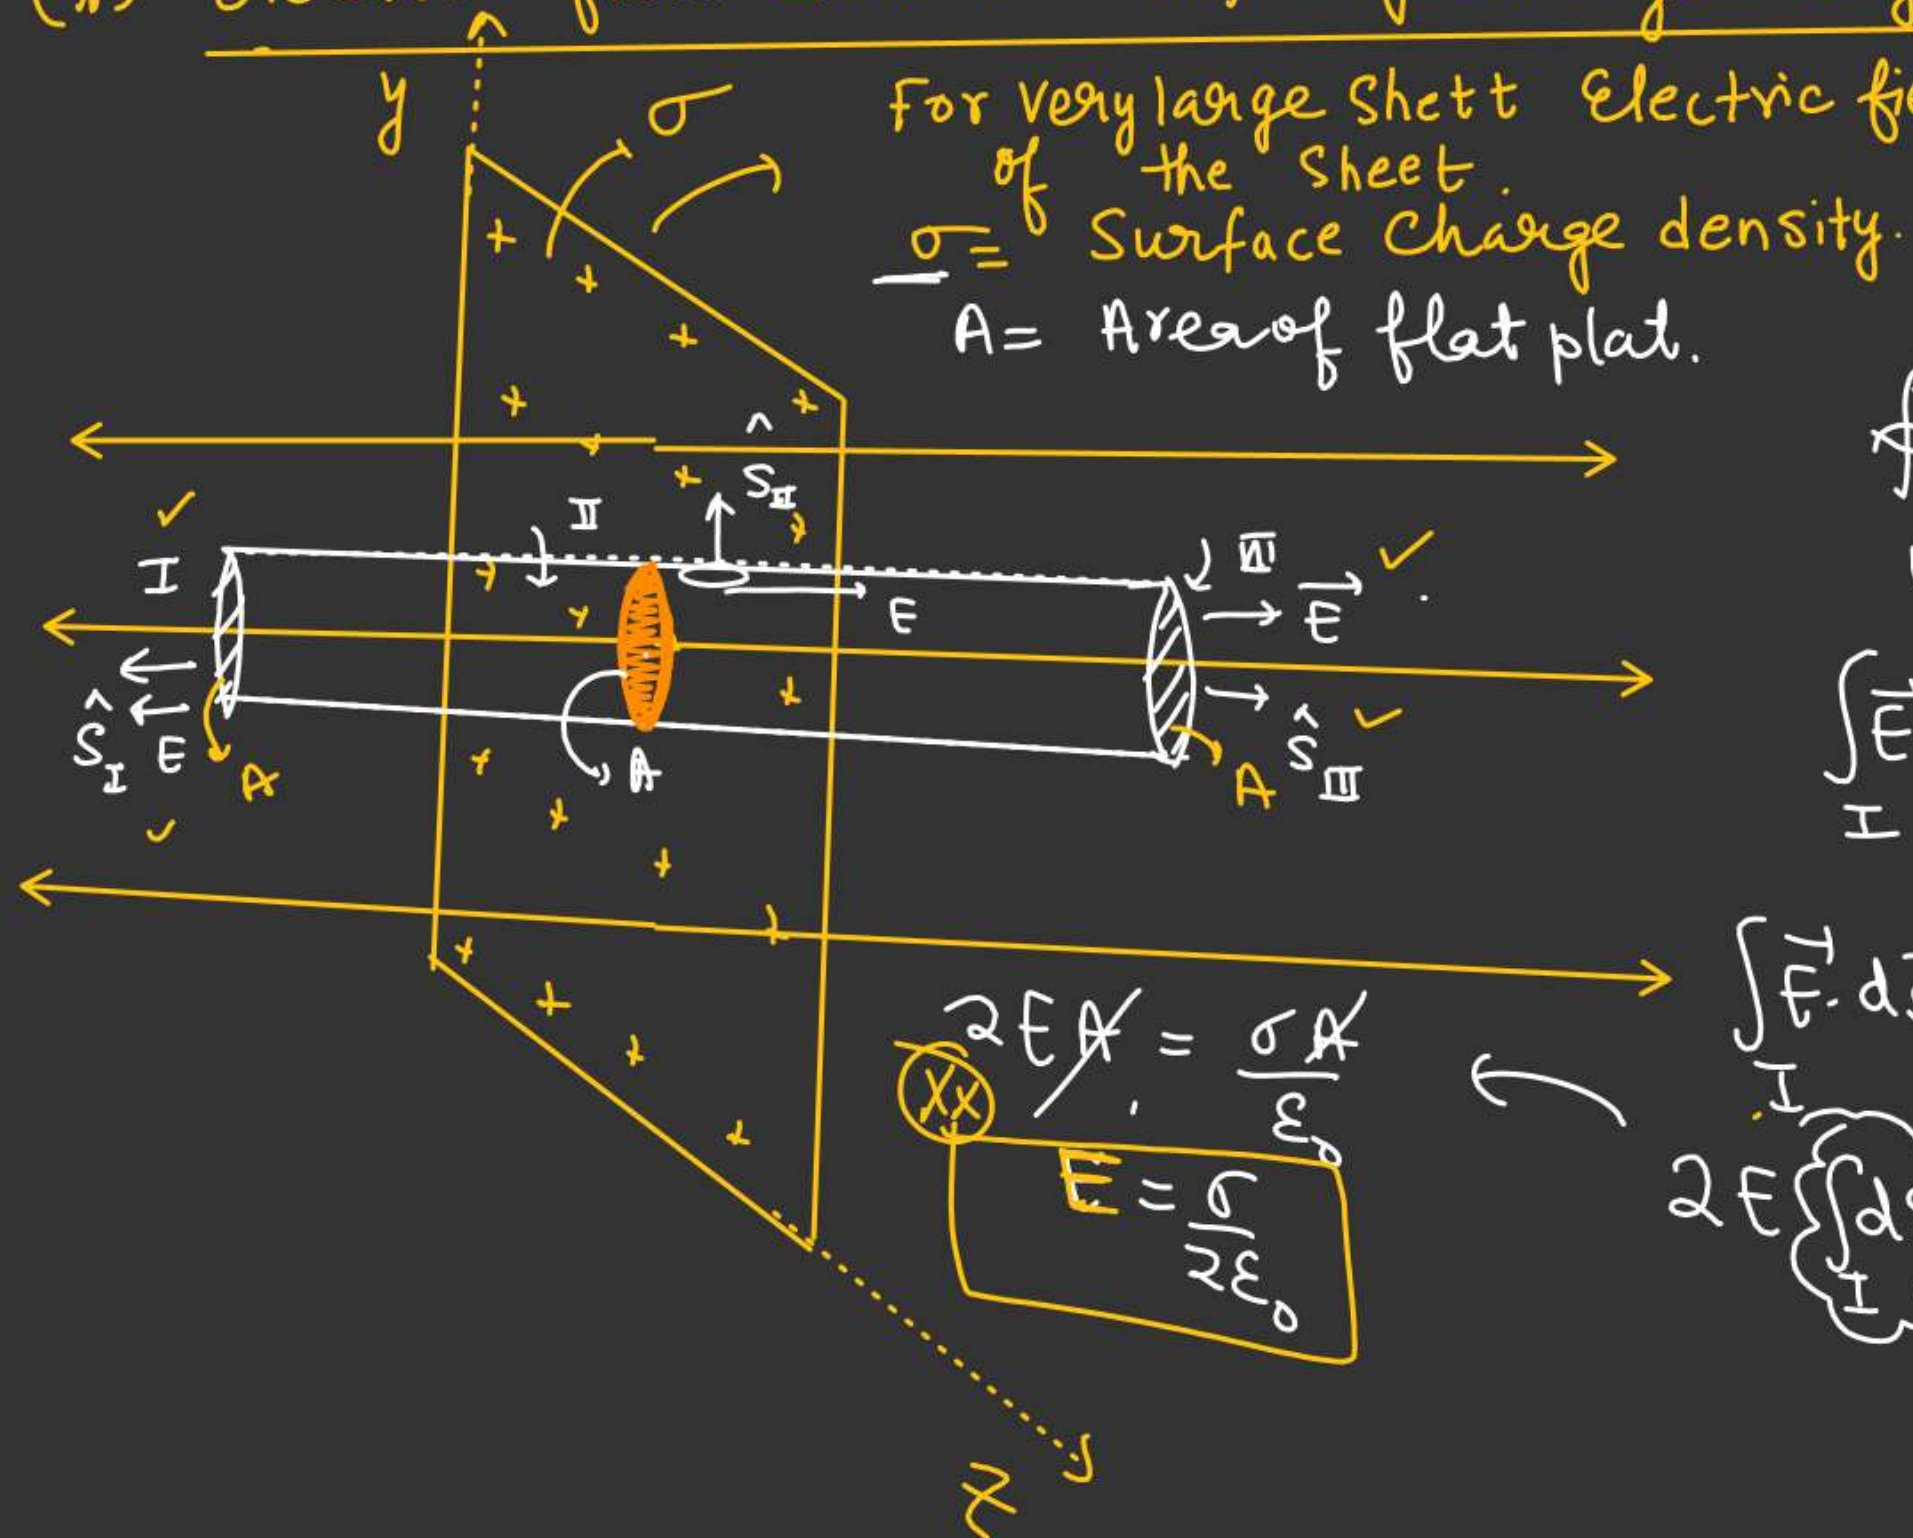 y
σ
For very large Shett Electric
of the Sheet.
σ = Surface Charge density.
A = Area of flat plat.
^
S_II
II
I
III
E
E
Ŝ_I E
A
A
A
Ŝ_III
∫E
I
∫E.d
I
2EA = σA/ε₀
XX
E = σ/2ε₀
2E{∫d
I
Z